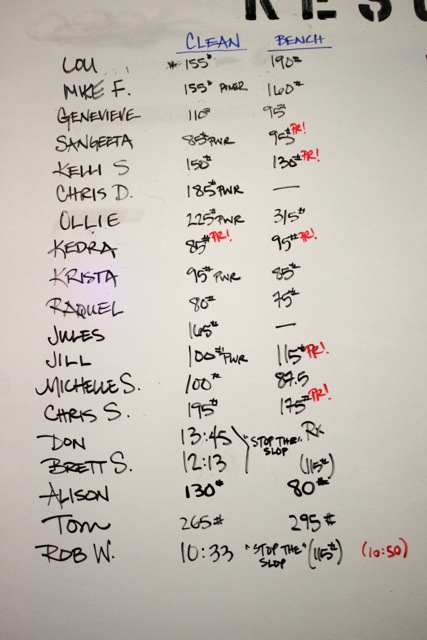 RESU
CLEAN BENCH
LOU *155# 190#
MIKE F. 155# POWER 160#
GENEVIEVE 110# 95#
SANGEETA 85# PWR 95# PR!
KELLI S 150# 130# PR!
CHRIS D. 185# PWR —
OLLIE 225# PWR 315#
KEDRA 85# PR! 95# PR!
KRISTA 95# PWR 85#
RAQUEL 80# 75#
JULES 165# —
JILL 100# PWR 115# PR!
MICHELLE S. 100# 87.5
CHRIS S. 195# 175# PR!
DON 13:45 "STOP THE SLOP" Rx
BRETT S. 12:13 (115#)
ALISON 130# 80#
TOM 265# 295#
ROB W. 10:33 "STOP THE" SLOP (115#) (10:50)